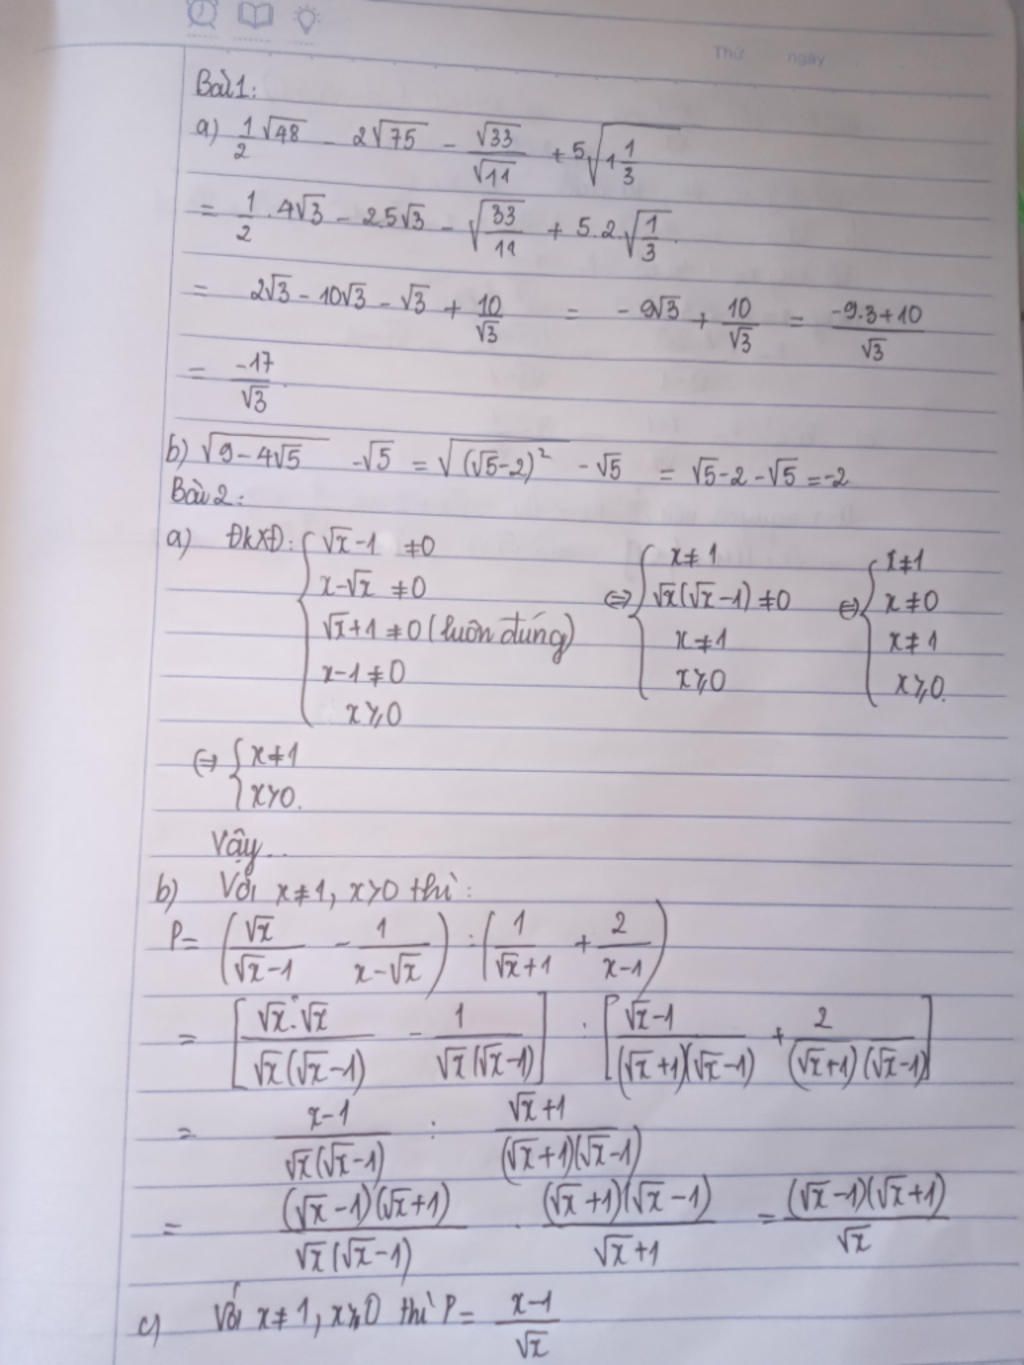 Thứ ngày
Bài 1:
a) 1/2 √48 - 2√75 - √33/√11 + 5√(1 1/3)
= 1/2 . 4√3 - 2.5√3 - √(33/11) + 5.2.√(1/3).
= 2√3 - 10√3 - √3 + 10/√3 = -9√3 + 10/√3 = (-9.3+10)/√3
= -17/√3.
b) √(9-4√5) - √5 = √((√5-2)²) - √5 = √5 - 2 - √5 = -2
Bài 2:
a) ĐKXĐ: { √x-1 ≠0 ; x-√x ≠0 ; √x+1 ≠0 (luôn đúng) ; x-1 ≠0 ; x⩾0 ⇔ { x≠1 ; √x(√x-1) ≠0 ; x≠1 ; x⩾0 ⇔ { x≠1 ; x≠0 ; x≠1 ; x⩾0.
⇔ { x≠1 ; x>0.
Vậy...
b) Với x≠1, x>0 thì:
P= (√x/(√x-1) - 1/(x-√x)) : (1/(√x+1) + 2/(x-1))
= [√x.√x/(√x(√x-1)) - 1/(√x(√x-1))] : [(√x-1)/((√x+1)(√x-1)) + 2/((√x+1)(√x-1))]
= (x-1)/(√x(√x-1)) : (√x+1)/((√x+1)(√x-1))
= (√x-1)(√x+1)/(√x(√x-1)) . (√x+1)(√x-1)/(√x+1) = (√x-1)(√x+1)/√x
c) Với x≠1, x⩾0 thì P= (x-1)/√x